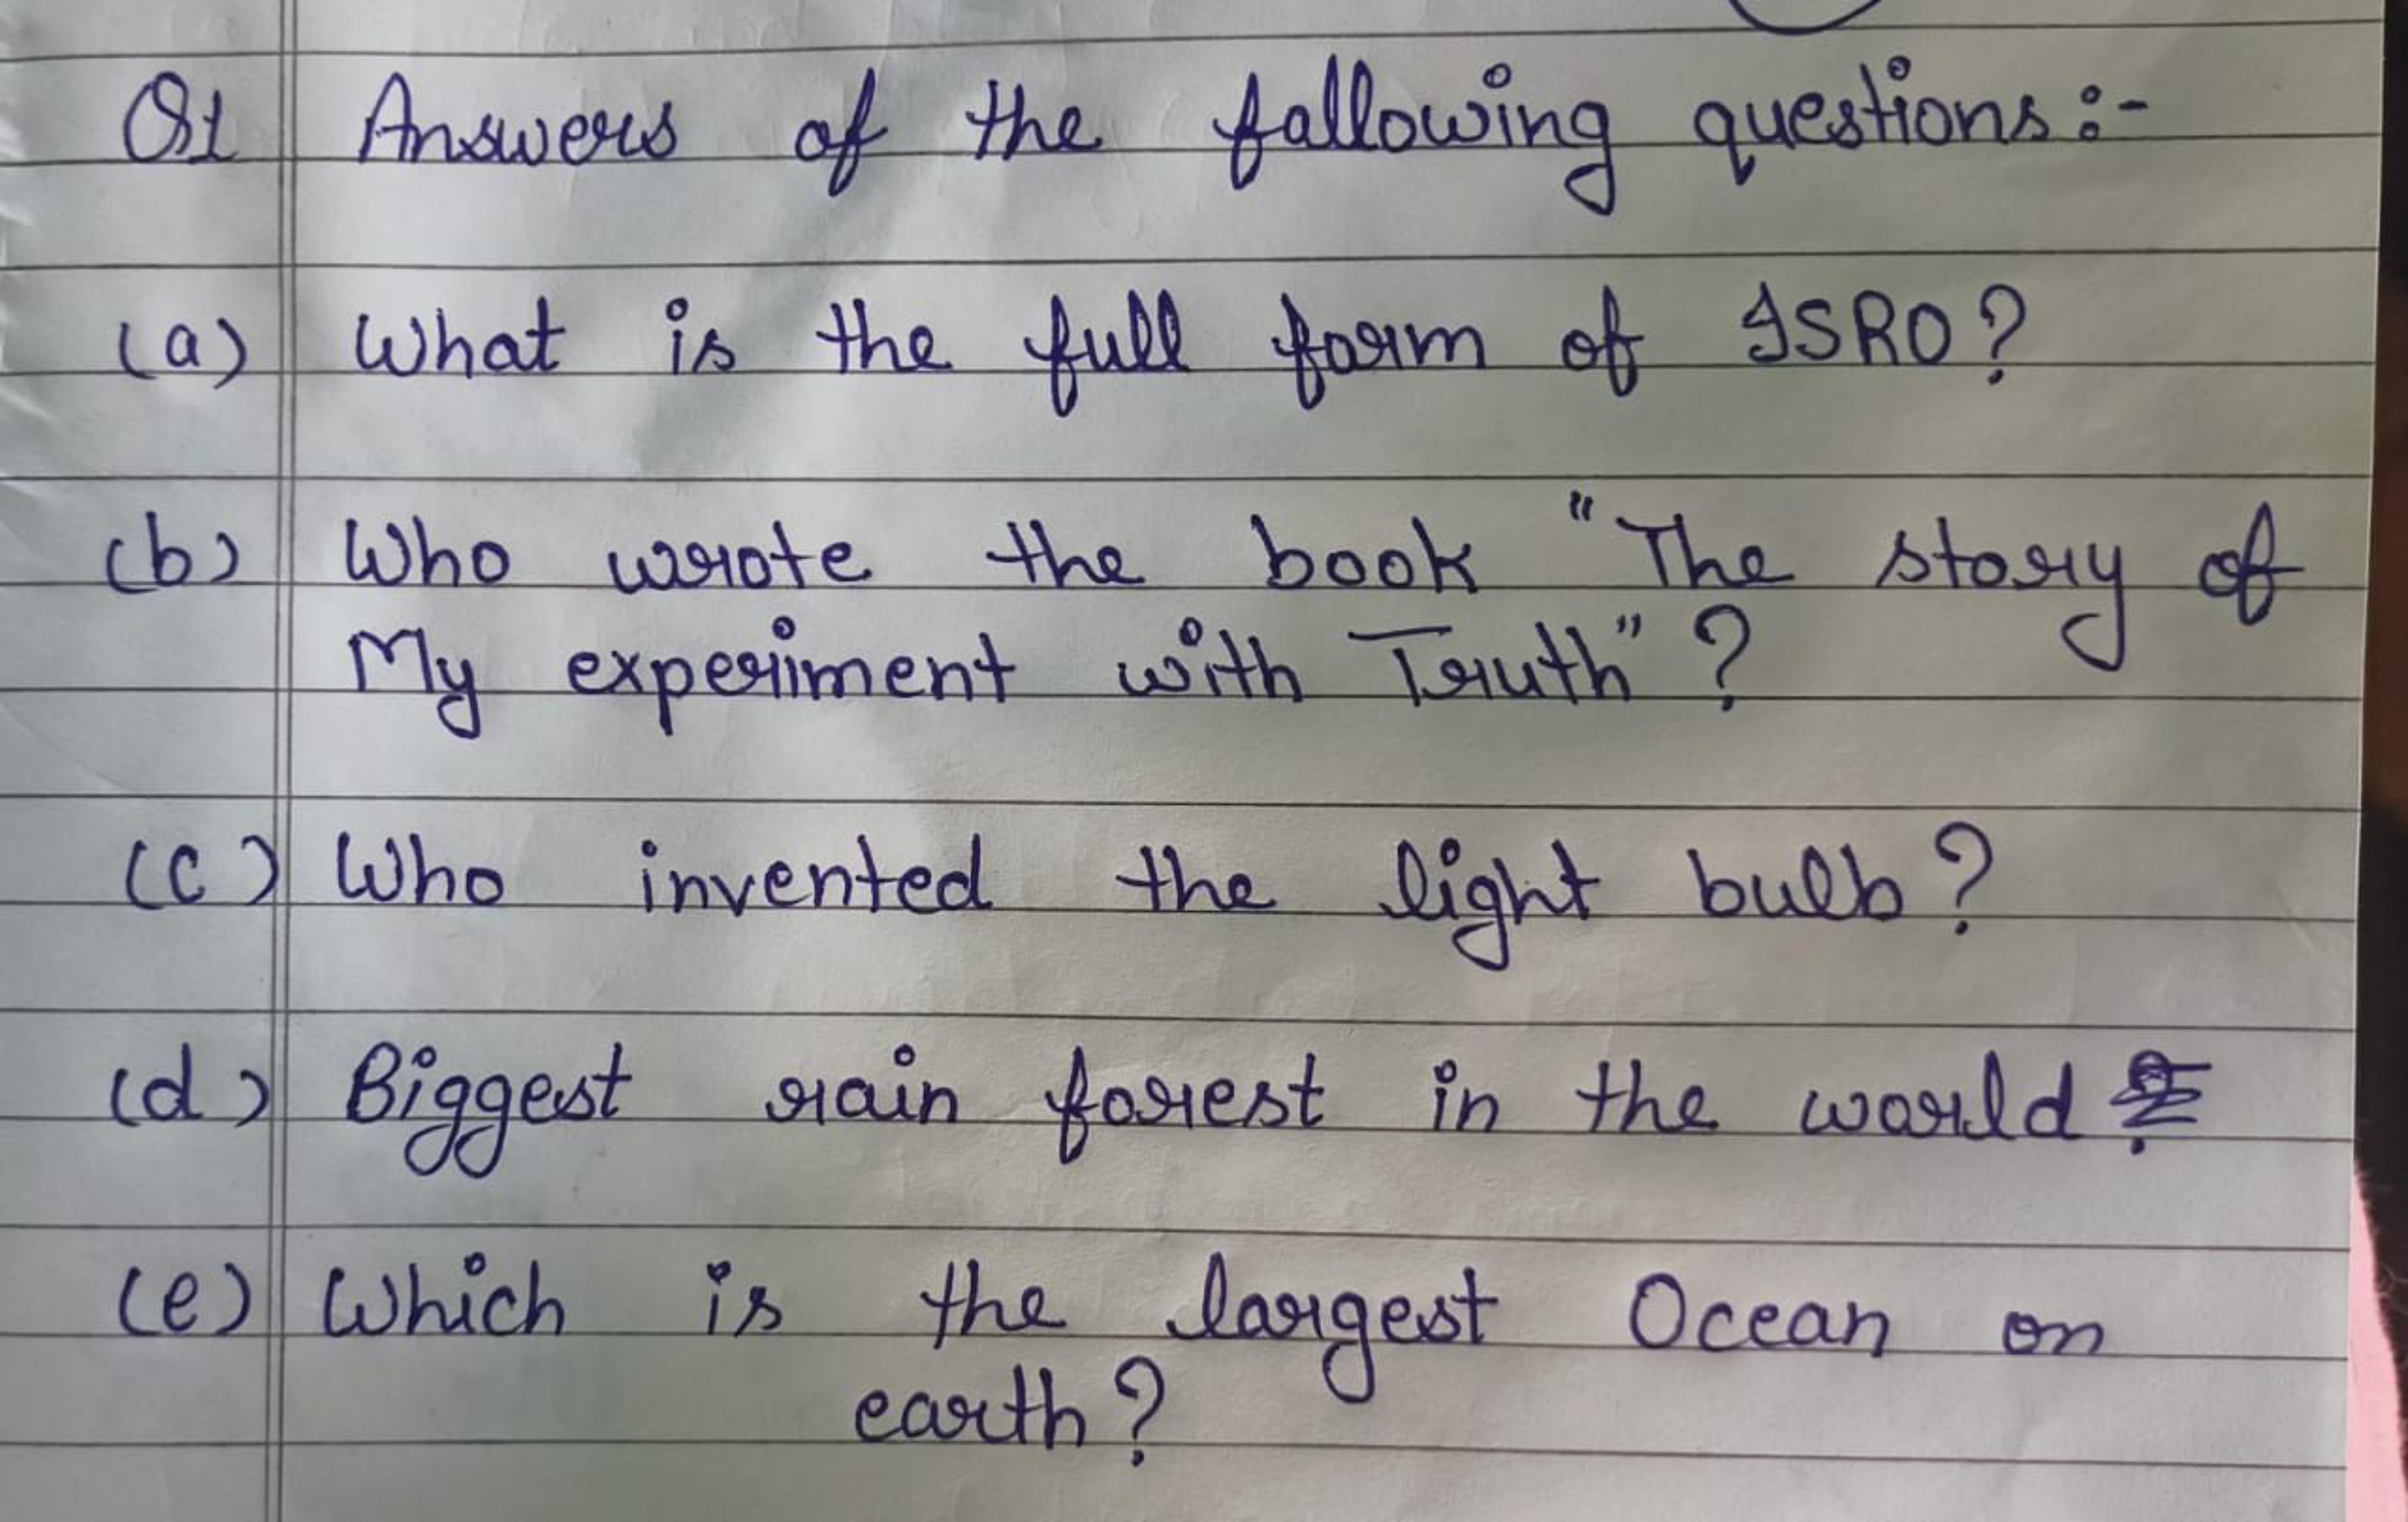 Q1 Answers of the fallowing questions:-
(a) What is the full form of ISRO?
(b) Who wrote the book "The story of
My experiment with Truth"?
(c) Who invented the light bulb?
(d) Biggest rain forest in the world
(e) Which is the largest Ocean on
earth?